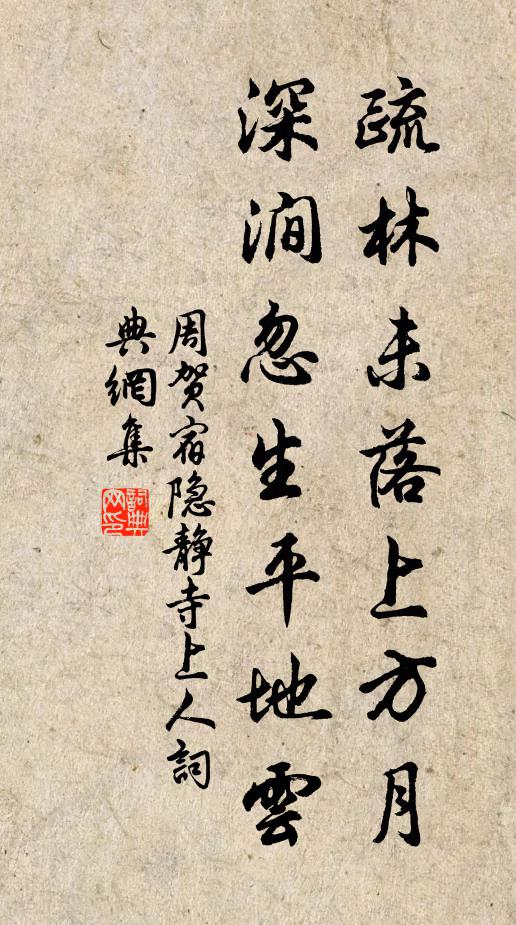 疏林未落上方月
深澗忽生平地雲
周贺宿隐静寺上人詞
典網集
詞典
网印